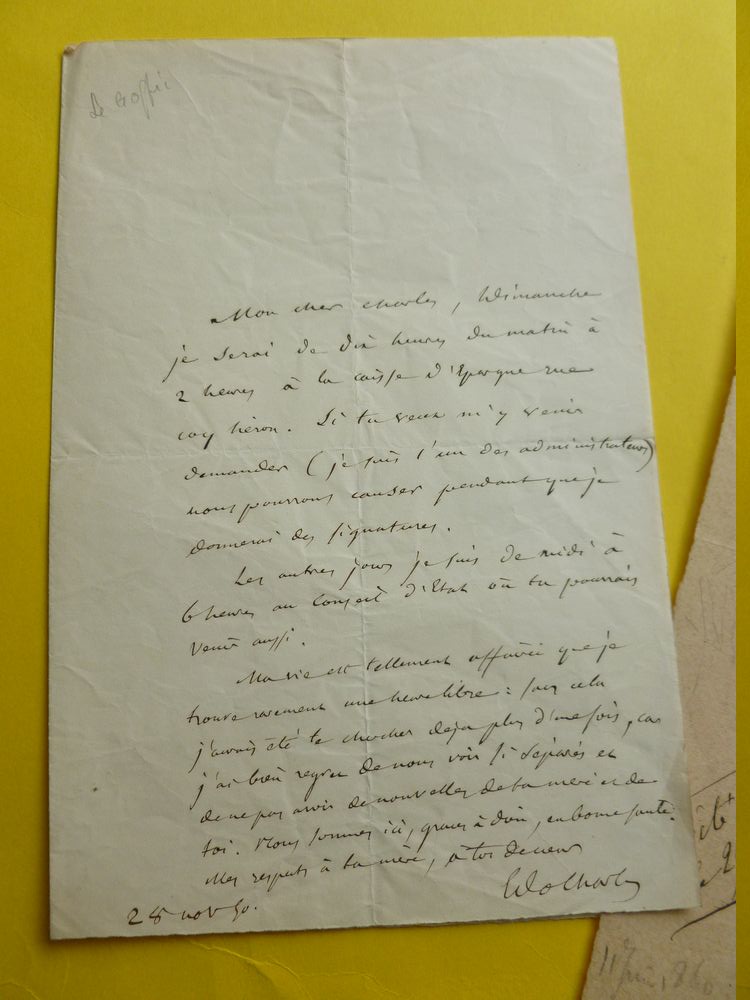 Mon cher Charles, Dimanche
je serai de dix heures du matin à
2 heures à la caisse d'Epargne rue
coq héron. Si tu veux m'y venir
demander (je suis l'un des administrateurs)
nous pourrons causer pendant que je
donnerai des signatures.
Les autres jours je suis de midi à
6 heures au Conseil d'Etat où tu pourrais
venir aussi.
Ma vie est tellement affairée que je
trouve rarement une heure libre : sans cela
j'aurais été te chercher déjà plus d'une fois, car
j'ai bien regret de nous voir si séparés et
de ne pas avoir de nouvelles de ta mère et de
toi. Nous sommes ici, graces à dieu, en bonne santé.
Mes respects à ta mère, à toi de cœur
28 nov 50.
11 Juin 1860